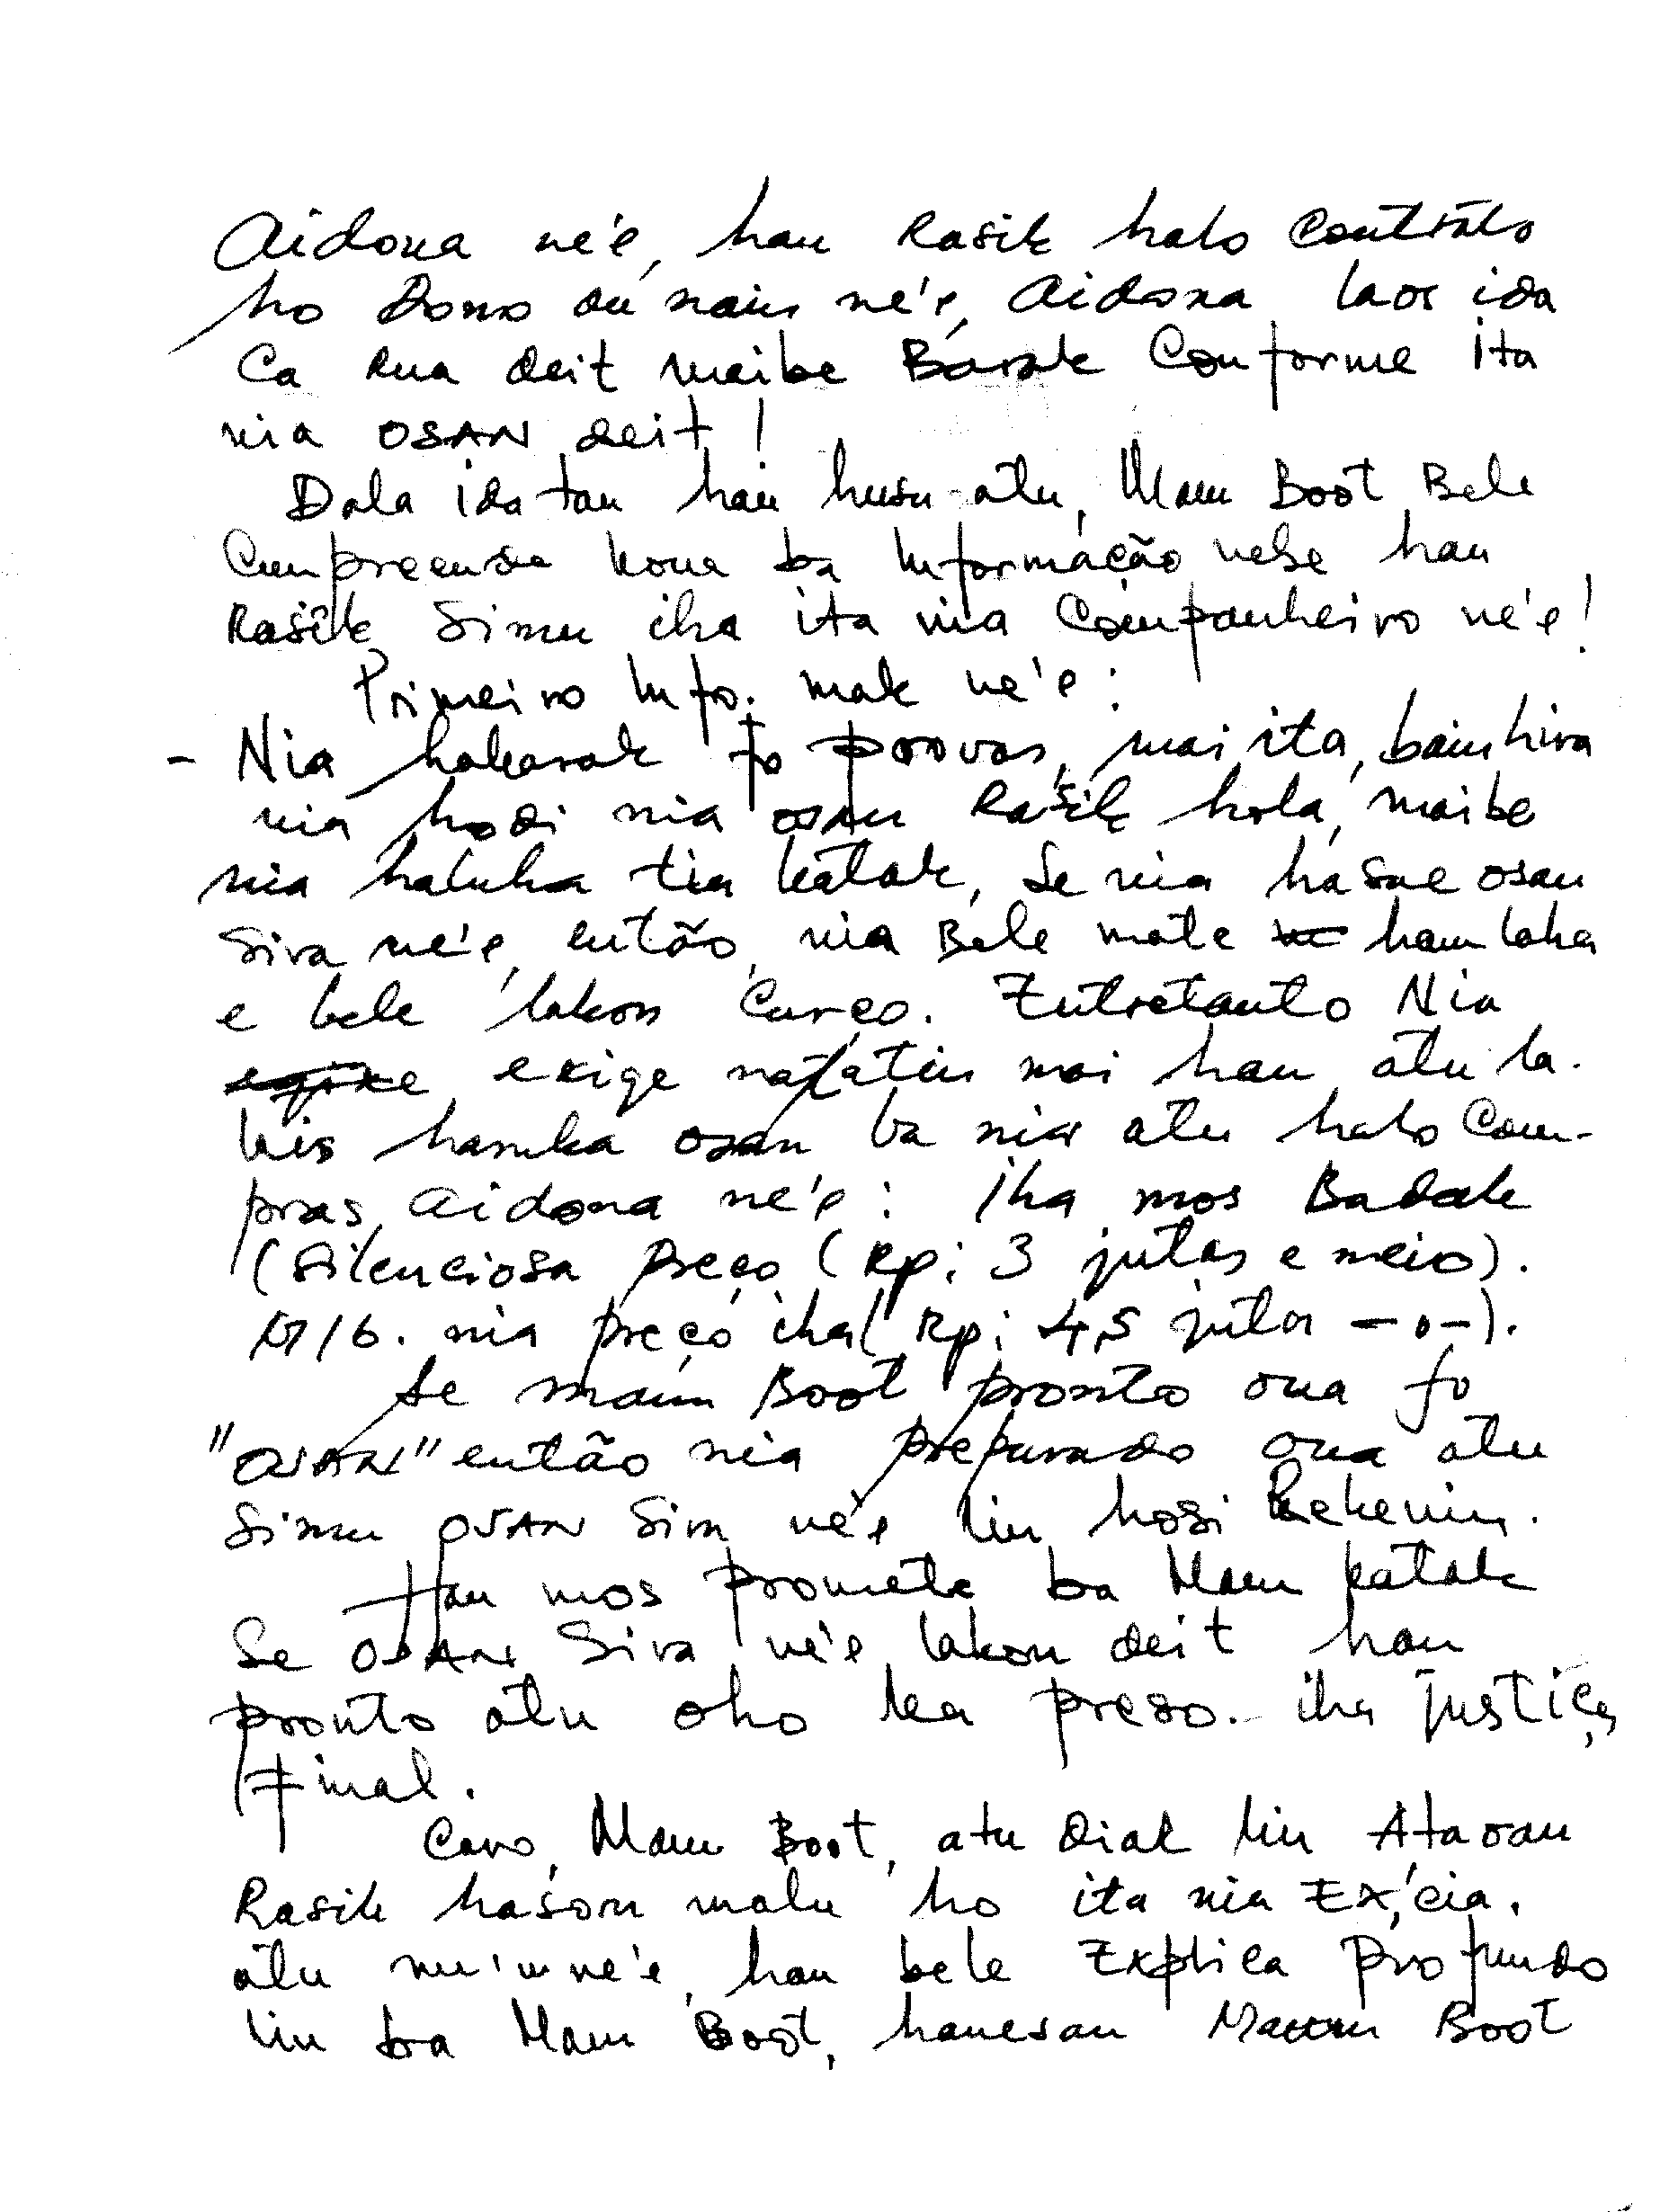 Aidona ne'e, hau Rasik halo Contrato
ho Dono ou nain ne'e, Aidona laos ida
Ca Rua deit maibe Barak Conforme ita
nia OSAN deit!
Dala ida tan hau husu atu, Maun Boot Bele
Cumpreense kona ba Informação nebe hau
Rasik Simu iha ita nia Companheiro ne'e!
Primeiro Info. mak ne'e:
- Nia hakarak fo provas, mai ita, bainhira
nia hodi nia osan Rasik hola, maibe
nia haluha tia katak, Se nia hasae osan
Sira ne'e, então, nia Bele mate hamlaha
e bele lakon Cargo. Entretanto Nia
exige nafatin mai hau atu la-
kis haruka osan ba nia atu halo Com-
pras, Aidona ne'e: Iha mos Badak
(Silenciosa Preço (Rp: 3 jutas e meio).
M16. nia preço iha( Rp: 4,5 jutas -o-).
Se maun Boot pronto ona fo
"OSAN" então nia preparado ona atu
Simu OSAN Sira ne'e liu hosi Rekenin.
Hau mos promete ba Maun katak
Se OSAN Sira ne'e lakon deit hau
pronto atu oho ka preso. iha justiça
Final.
Caro, Maun Boot, atu diak liu Ataran
Rasik hasoru malu ho ita nia Ex,cia.
atu nu'u ne'e, hau bele Explica Profundo
liu ba Maun Boot, hanesan Maun Boot